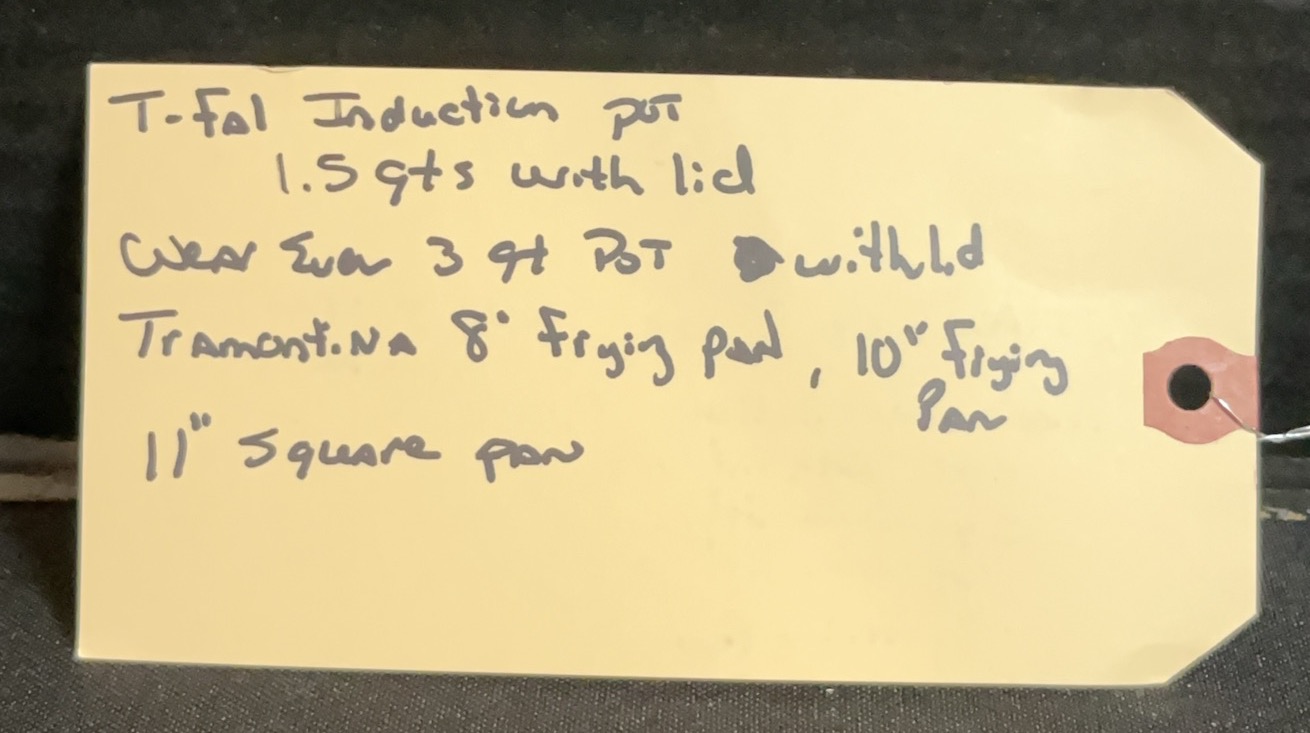 T-fal Induction pot
1.5 qts with lid
Wear Ever 3 qt Pot with lid
Tramontina 8" frying pan, 10" frying
Pan
11" Square pan